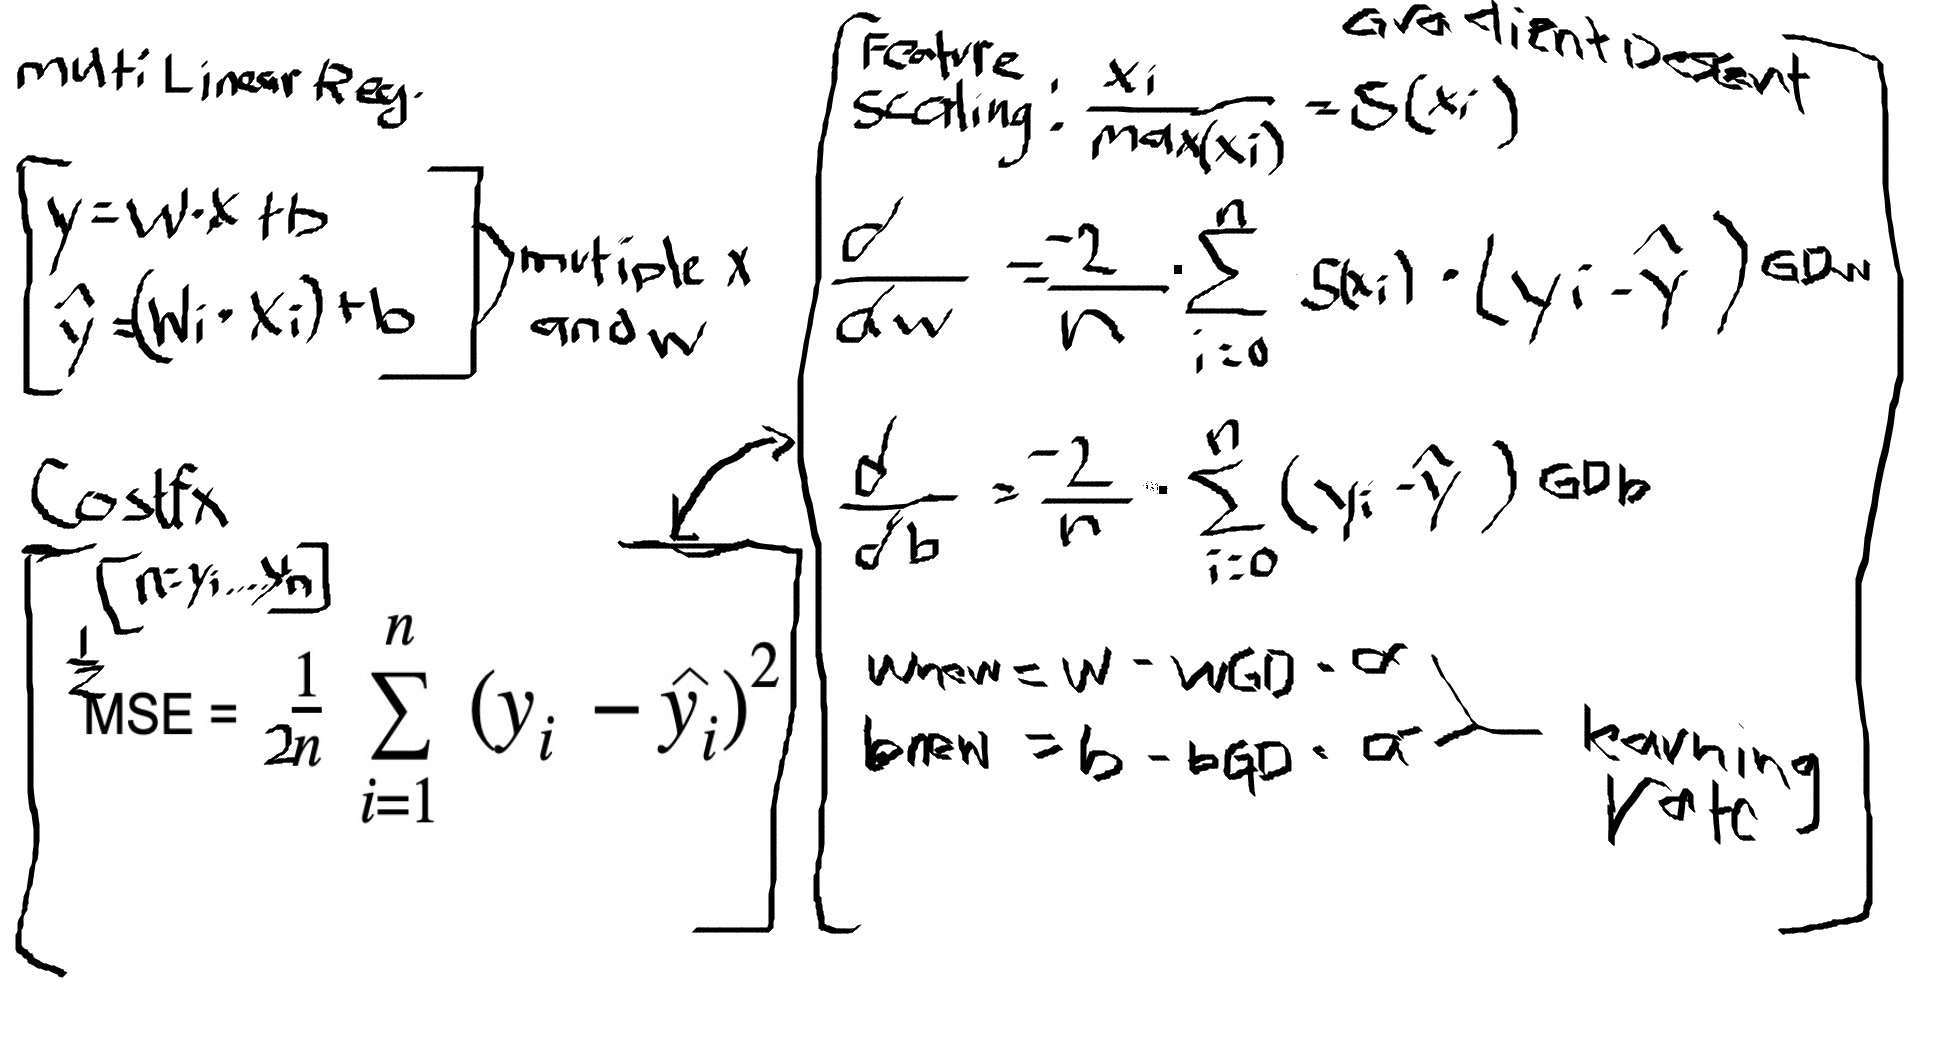 multi Linear Reg.
y = w·x + b
ŷ = (Wi · Xi) + b
mutiple x
and w
Costfx
[n=yi...yn]
1/2
MSE = 1/2n n∑i=1 (yi − ŷi)²
Gradient Descent
Feature
Scaling: xi/max(xi) = S(xi)
d/dw = -2/n · n∑i=0 S(xi) · (yi - ŷ) GDw
d/db = -2/n · n∑i=0 (yi - ŷ) GDb
wnew = w - wGD · α
bnew = b - bGD · α
learning
rate